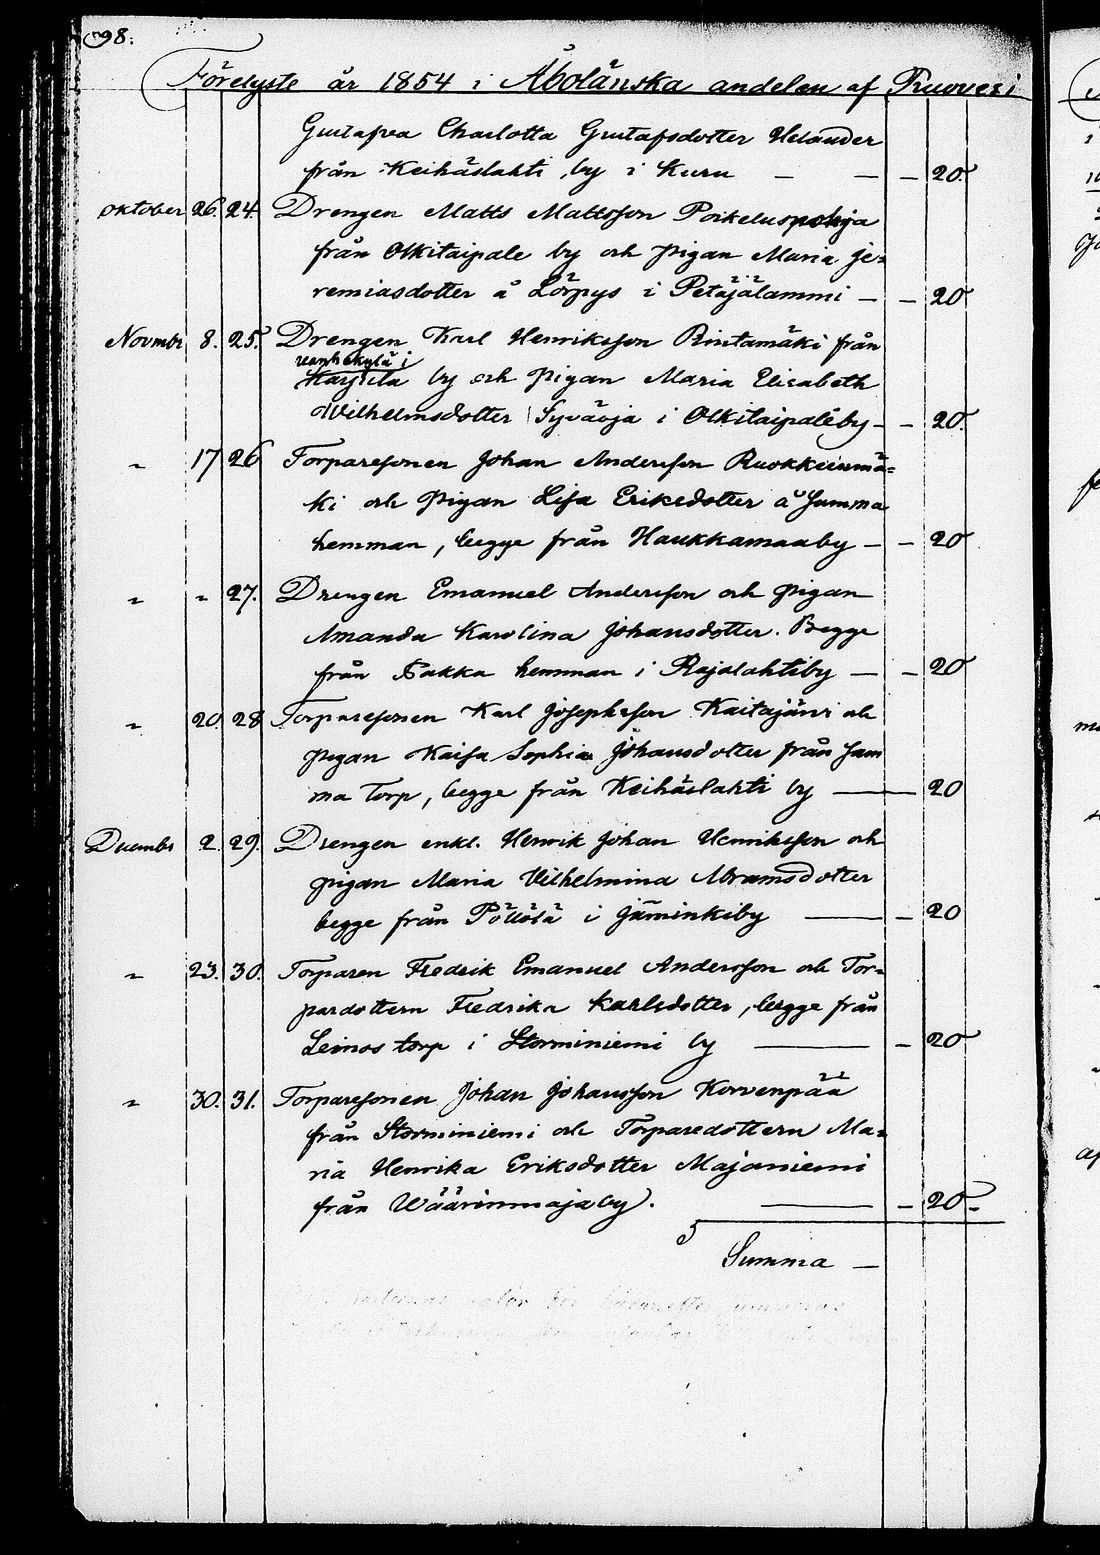 98.
Förelyste år 1854 i Åbolänska andelen af Ruovesi
Gustafva Charlotta Gustafsdotter Helander
från Keihäslahti by i Kuru — — — 20.
Oktober 26. 24. Drengen Matts Mattsson Poikeluspohja
från Olkitaipale by och pigan Maria Je=
remiasdotter å Lörpys i Petäjälammi — — 20
Novmbr 8. 25. Drengen Karl Henriksson Rintamäki från
vanhakylä i
Harjula by och pigan Maria Elisabeth
Wilhelmsdotter Syväoja i Olkitaipaleby — — 20.
" 17 26 Torparesonen Johan Andersson Ruokkeenmä=
ki och pigan Lisa Eriksdotter å samma
hemman, begge från Haukkamaaby — — 20
" " 27. Drengen Emanuel Andersson och pigan
Amanda Karolina Johansdotter. Begge
från Pakka hemman i Rajalahtiby — — 20
" 20. 28 Torparesonen Karl Josephsson Kaitajärvi och
pigan Kaisa Sophia Johansdotter från sam
ma Torp, begge från Keihäslahti by — — 20
December 2. 29. Drengen enkl. Henrik Johan Henriksson och
pigan Maria Vilhelmina Abramsdotter
begge från Pöllölä i Jäminkiby — — 20
" 23. 30. Torparen Fredrik Emanuel Andersson och Tor=
pardottern Fredrika Karlsdotter, begge från
Leinos torp i Storminiemi by — — 20
" 30. 31. Torparesonen Johan Johansson Korvenpää
från Storminiemi och Torparedottern Ma=
ria Henrika Eriksdotter Majaniemi
från Wäärinmajaby. — — 20 -
Summa —